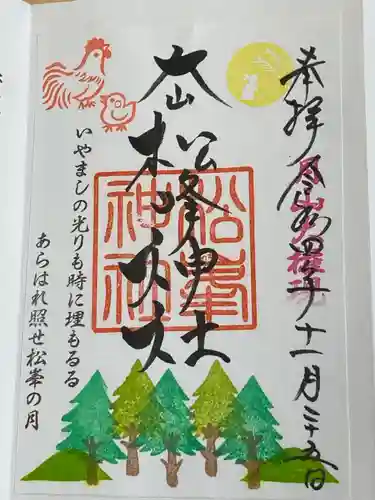 奉拝 令和四年十一月二十五日
松峯神社
松峯神社
いやましの光りも時に埋もるる
あらはれ照せ松峯の月